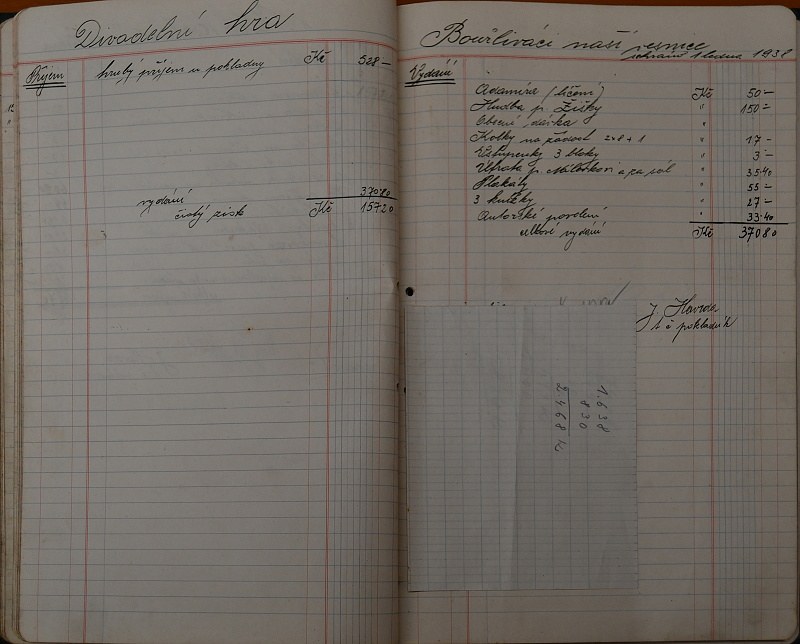 Divadelní hra
Příjem hrubý příjem u pokladny Kč 528 —
vydání 370 80
čistý zisk Kč 157 20
Bouřliváci naší vesnice
1 ledna 1938
Vydání
Adamíra (líčení) Kč 50 —
Hudba p. Žižky " 150 —
Obecní dávka "
Kolky na žádost 2 " 17 —
Vstupenky 3 bloky " 3 —
Útrata p. a za sál " 35 40
Plakáty " 55 —
3 knížky " 27 —
Autorské povolení " 33.40
celkové vydání Kč 370 80
J. Havrda
t č pokladník
1.638
830
2468 K.